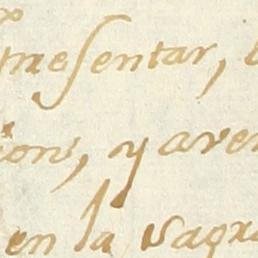 presentar,
ion, y aver
en la sagra